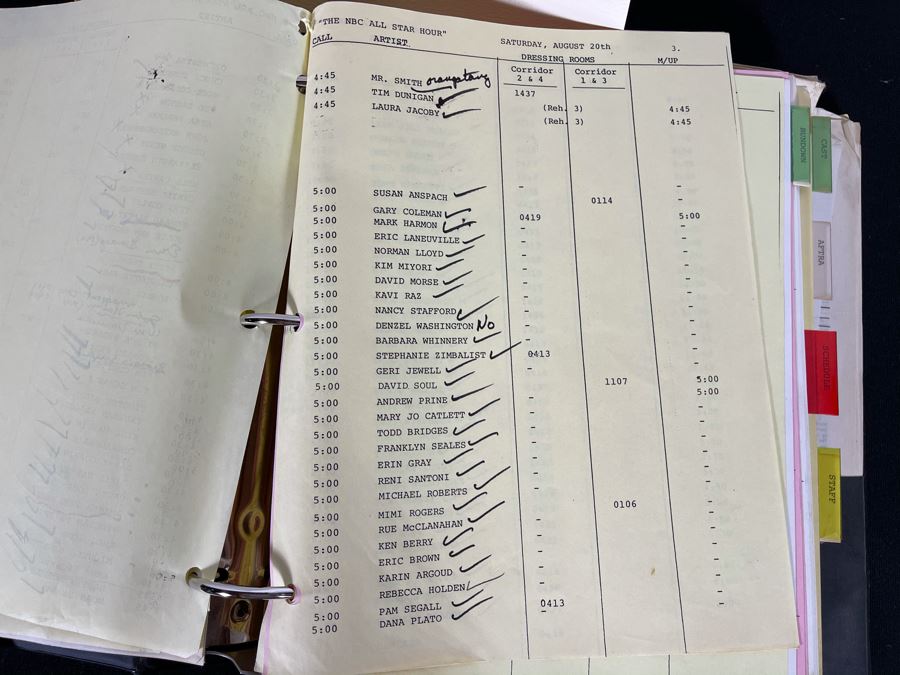 "THE NBC ALL STAR HOUR" SATURDAY, AUGUST 20th 3.
CALL ARTIST DRESSING ROOMS M/UP
Corridor 2 & 4 Corridor 1 & 3
4:45 MR. SMITH orangutang 1437
4:45 TIM DUNIGAN (Reh. 3) 4:45
4:45 LAURA JACOBY (Reh. 3) 4:45
5:00 SUSAN ANSPACH - 0114 -
5:00 GARY COLEMAN - -
5:00 MARK HARMON 0419 5:00
5:00 ERIC LANEUVILLE - -
5:00 NORMAN LLOYD - -
5:00 KIM MIYORI - -
5:00 DAVID MORSE - -
5:00 KAVI RAZ - -
5:00 NANCY STAFFORD - -
5:00 DENZEL WASHINGTON No - -
5:00 BARBARA WHINNERY - -
5:00 STEPHANIE ZIMBALIST 0413 -
5:00 GERI JEWELL - -
5:00 DAVID SOUL 1107 5:00
5:00 ANDREW PRINE - 5:00
5:00 MARY JO CATLETT - -
5:00 TODD BRIDGES - -
5:00 FRANKLYN SEALES - -
5:00 ERIN GRAY - -
5:00 RENI SANTONI - -
5:00 MICHAEL ROBERTS - -
5:00 MIMI ROGERS - 0106 -
5:00 RUE McCLANAHAN - -
5:00 KEN BERRY - -
5:00 ERIC BROWN - -
5:00 KARIN ARGOUD - -
5:00 REBECCA HOLDEN - -
5:00 PAM SEGALL 0413 -
5:00 DANA PLATO -
RUNDOWN
CAST
AFTRA
SCHEDULE
STAFF